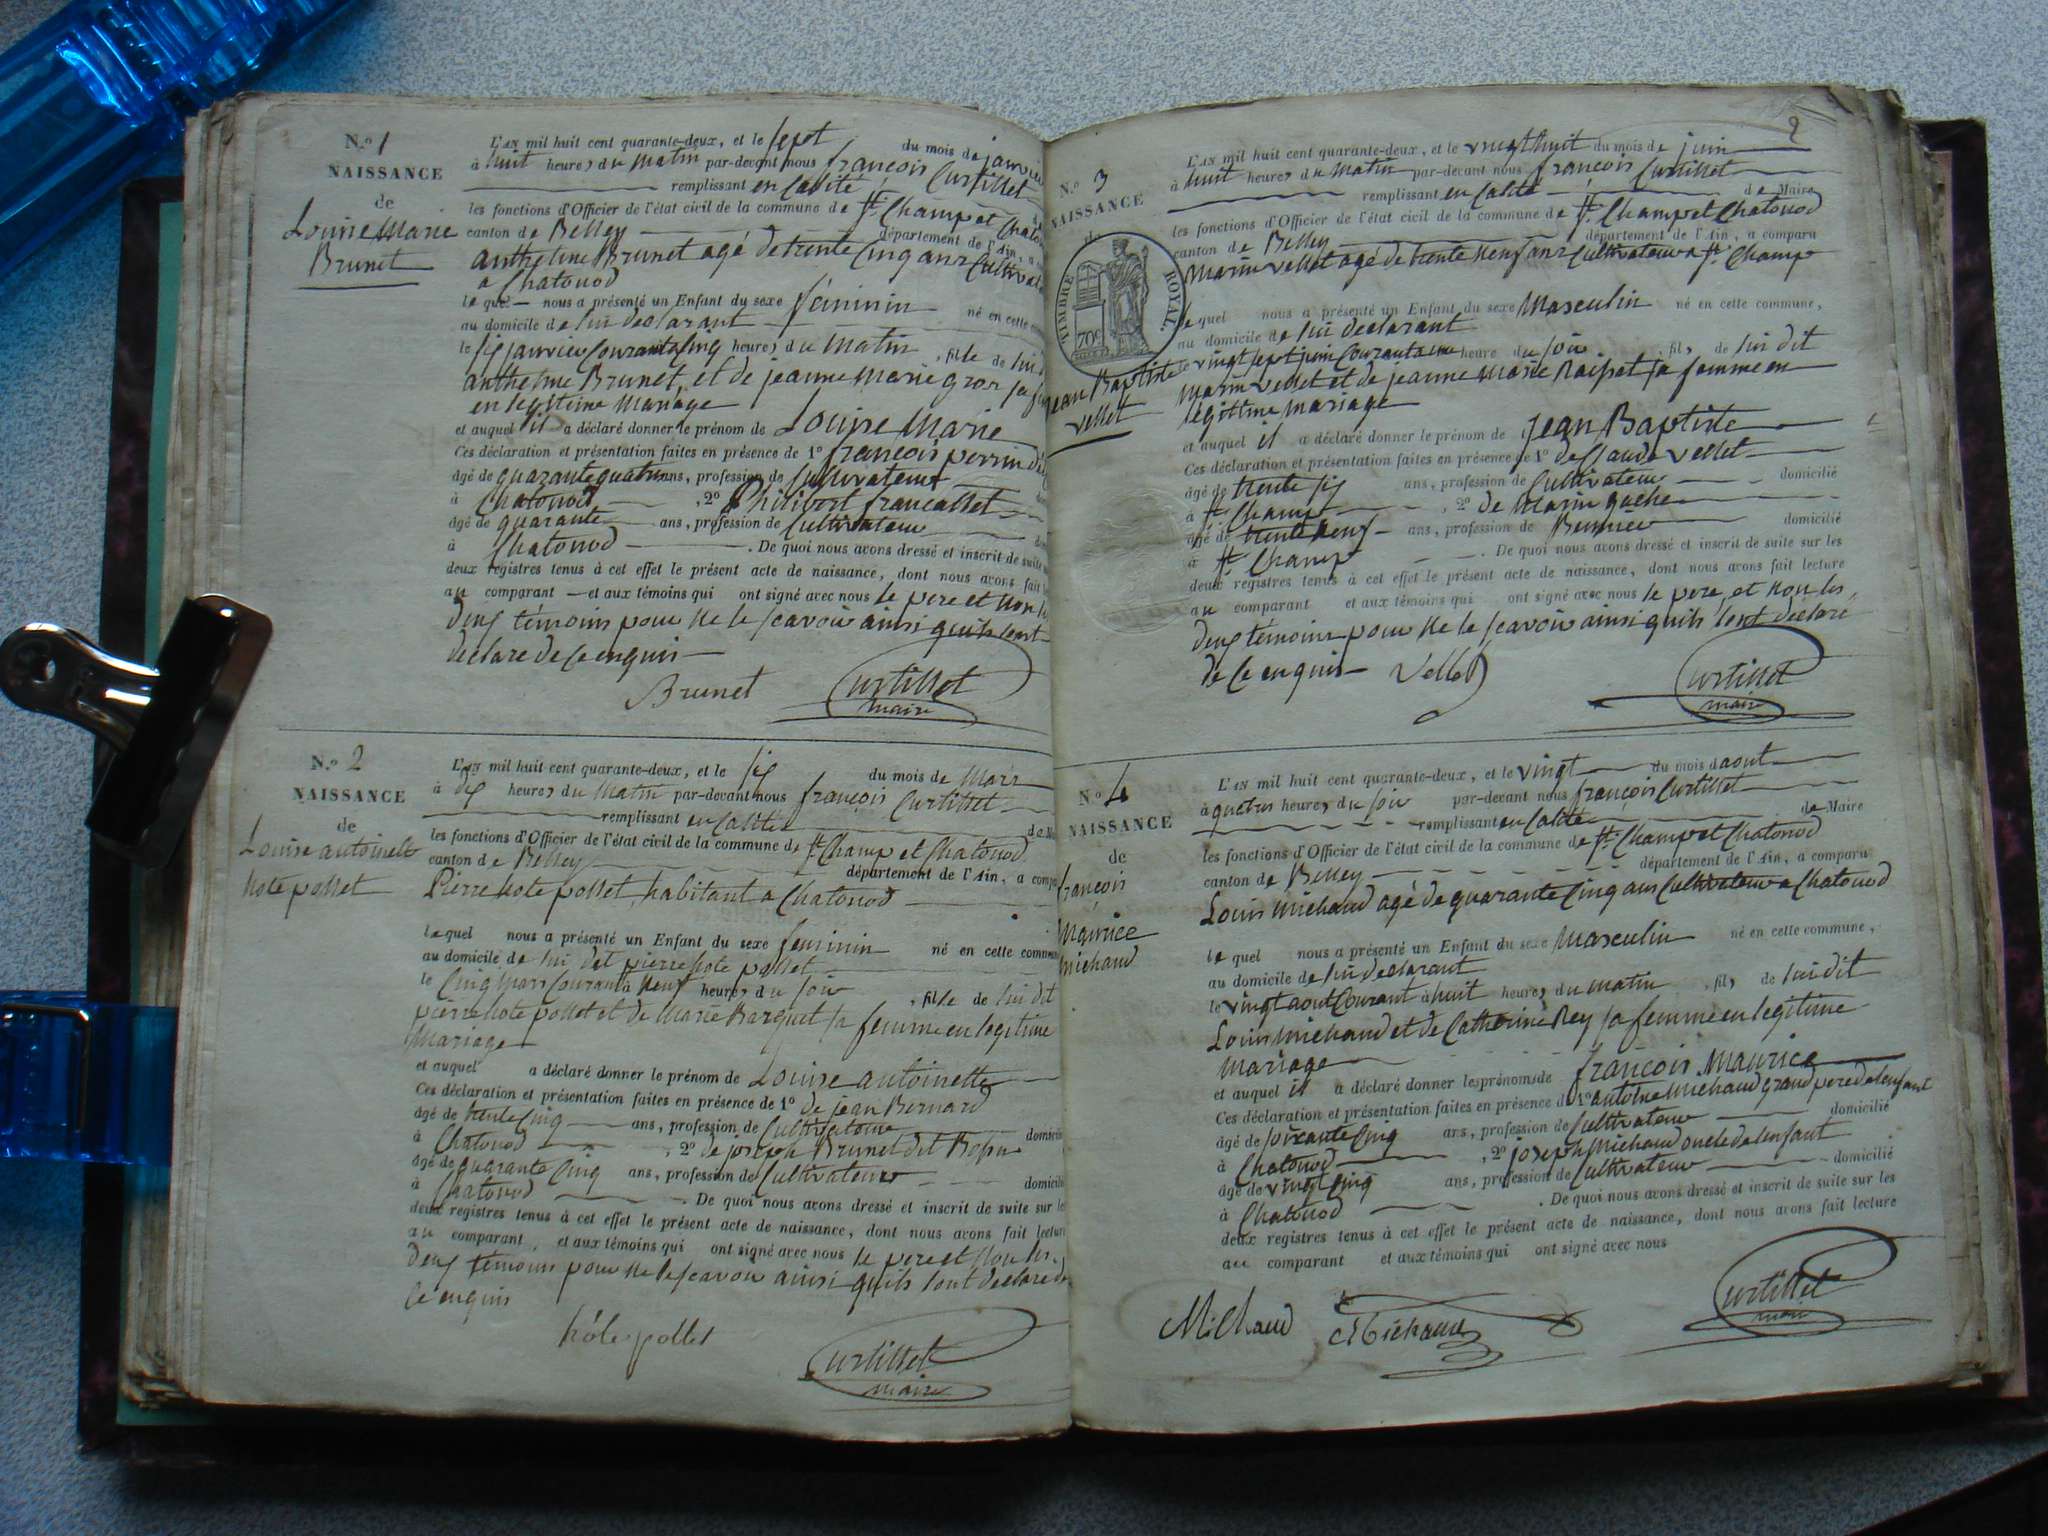 N.º 1
NAISSANCE
de
Louise Marie
Brunet
L'AN mil huit cent quarante-deux, et le sept du mois de janvier
à huit heures du matin par-devant nous françois Curtillet
remplissant en Calité
les fonctions d'Officier de l'état civil de la commune de St. Champ et Chatonod
canton de Belley département de l'Ain, a
anthelme Brunet agé de trente Cinq ans Cultivateur
a Chatonod
le quel nous a présenté un Enfant du sexe féminin né en cette
au domicile de lui declarant
le six janvier Courant a Cinq heures du matin, fille de lui
anthelme Brunet, et de jeanne marie gros sa
en legitime mariage
et auquel il a déclaré donner le prénom de Louise Marie
Ces déclaration et présentation faites en présence de 1º françois perrin
âgé de quarante quatre ans, profession de Cultivateur
à Chatonod, 2º Philibert francallet
âgé de quarante ans, profession de Cultivateur
à Chatonod. De quoi nous avons dressé et inscrit de suite
deux registres tenus à cet effet le présent acte de naissance, dont nous avons fait
au comparant et aux témoins qui ont signé avec nous le pere et non les
deux témoins pour ne le scavoir ainsi quils lont
declare de ce enquis
Brunet Curtillet
maire
N.º 2
NAISSANCE
de
Louise antoinette
hote pollet
L'AN mil huit cent quarante-deux, et le six du mois de Mars
à dix heures du matin par-devant nous françois Curtillet
remplissant en Calité de
les fonctions d'Officier de l'état civil de la commune de St. Champ et Chatonod
canton de Belley département de l'Ain, a
Pierre hote pollet habitant a Chatonod
le quel nous a présenté un Enfant du sexe feminin né en cette
au domicile de lui dit pierre hote pollet
le Cinq mars Courant a neuf heures du soir, fille de lui dit
pierre hote pollet et de Marie Barquet sa femme en legitime
Mariage
et auquel a déclaré donner le prénom de Louise antoinette
Ces déclaration et présentation faites en présence de 1º de jean Bernard
âgé de trente Cinq ans, profession de Cultivateur
à Chatonod, 2º de joseph Brunet dit
âgé de quarante Cinq ans, profession de Cultivateur
à Chatonod. De quoi nous avons dressé et inscrit de suite sur les
deux registres tenus à cet effet le présent acte de naissance, dont nous avons fait lecture
au comparant, et aux témoins qui ont signé avec nous le pere et non les
deux témoins pour ne le scavoir ainsi quils lont declare de
Ce enquis
hôte pollet Curtillet
maire
2
N.º 3
NAISSANCE
de
TIMBRE ROYAL.
70c
jean Baptiste
vellet
L'AN mil huit cent quarante-deux, et le vingt huit du mois de juin
à huit heures du matin par-devant nous françois Curtillet
remplissant en Calité de Maire
les fonctions d'Officier de l'état civil de la commune de St. Champ et Chatonod
canton de Belley département de l'Ain, a comparu
Marin vellet agé de trente neuf ans Cultivateur a St. Champ
le quel nous a présenté un Enfant du sexe Masculin né en cette commune,
au domicile de lui declarant
le vingt sept juin Courant a une heure du soir, fils de lui dit
Marin vellet et de jeanne marie sa femme en
légitime mariage
et auquel il a déclaré donner le prénom de jean Baptiste
Ces déclaration et présentation faites en présence de 1º de Claude vellet
âgé de trente six ans, profession de Cultivateur domicilié
à St. Champ, 2º de Marin
âgé de trente neuf ans, profession de domicilié
à St. Champ. De quoi nous avons dressé et inscrit de suite sur les
deux registres tenus à cet effet le présent acte de naissance, dont nous avons fait lecture
au comparant et aux témoins qui ont signé avec nous le pere, et non les
deux témoins pour ne le scavoir ainsi quils lont déclaré
de Ce enquis Vellet Curtillet
maire
N.º 4
NAISSANCE
de
françois
Maurice
michaud
L'AN mil huit cent quarante-deux, et le vingt du mois d aout
à quatre heures du soir par-devant nous françois Curtillet
remplissant en Calité de Maire
les fonctions d'Officier de l'état civil de la commune de St. Champ et Chatonod
canton de Belley département de l'Ain, a comparu
Louis michaud agé de quarante Cinq ans Cultivateur a Chatonod
le quel nous a présenté un Enfant du sexe masculin né en cette commune,
au domicile de lui declarant
le vingt aout Courant a huit heures du matin, fils de lui dit
Louis michaud et de Catherine Rey sa femme en legitime
Mariage
et auquel il a déclaré donner les prénoms de françois Maurice
Ces déclaration et présentation faites en présence de 1º antoine michaud grand pere de lenfant
âgé de soixante Cinq ans, profession de Cultivateur domicilié
à Chatonod, 2º joseph Michaud oncle de lenfant
âgé de vingt Cinq ans, profession de Cultivateur domicilié
à Chatonod. De quoi nous avons dressé et inscrit de suite sur les
deux registres tenus à cet effet le présent acte de naissance, dont nous avons fait lecture
au comparant et aux témoins qui ont signé avec nous
Michaud Michaud Curtillet
maire